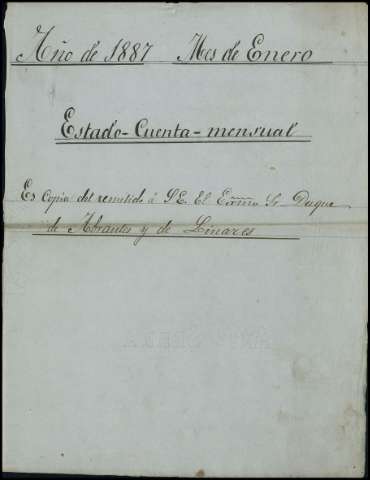 Año de 1887 Mes de Enero
Estado-Cuenta-mensual
Es Copia del remitido á S.E. El Exmo Sr Duque
de Abrantes y de Linares